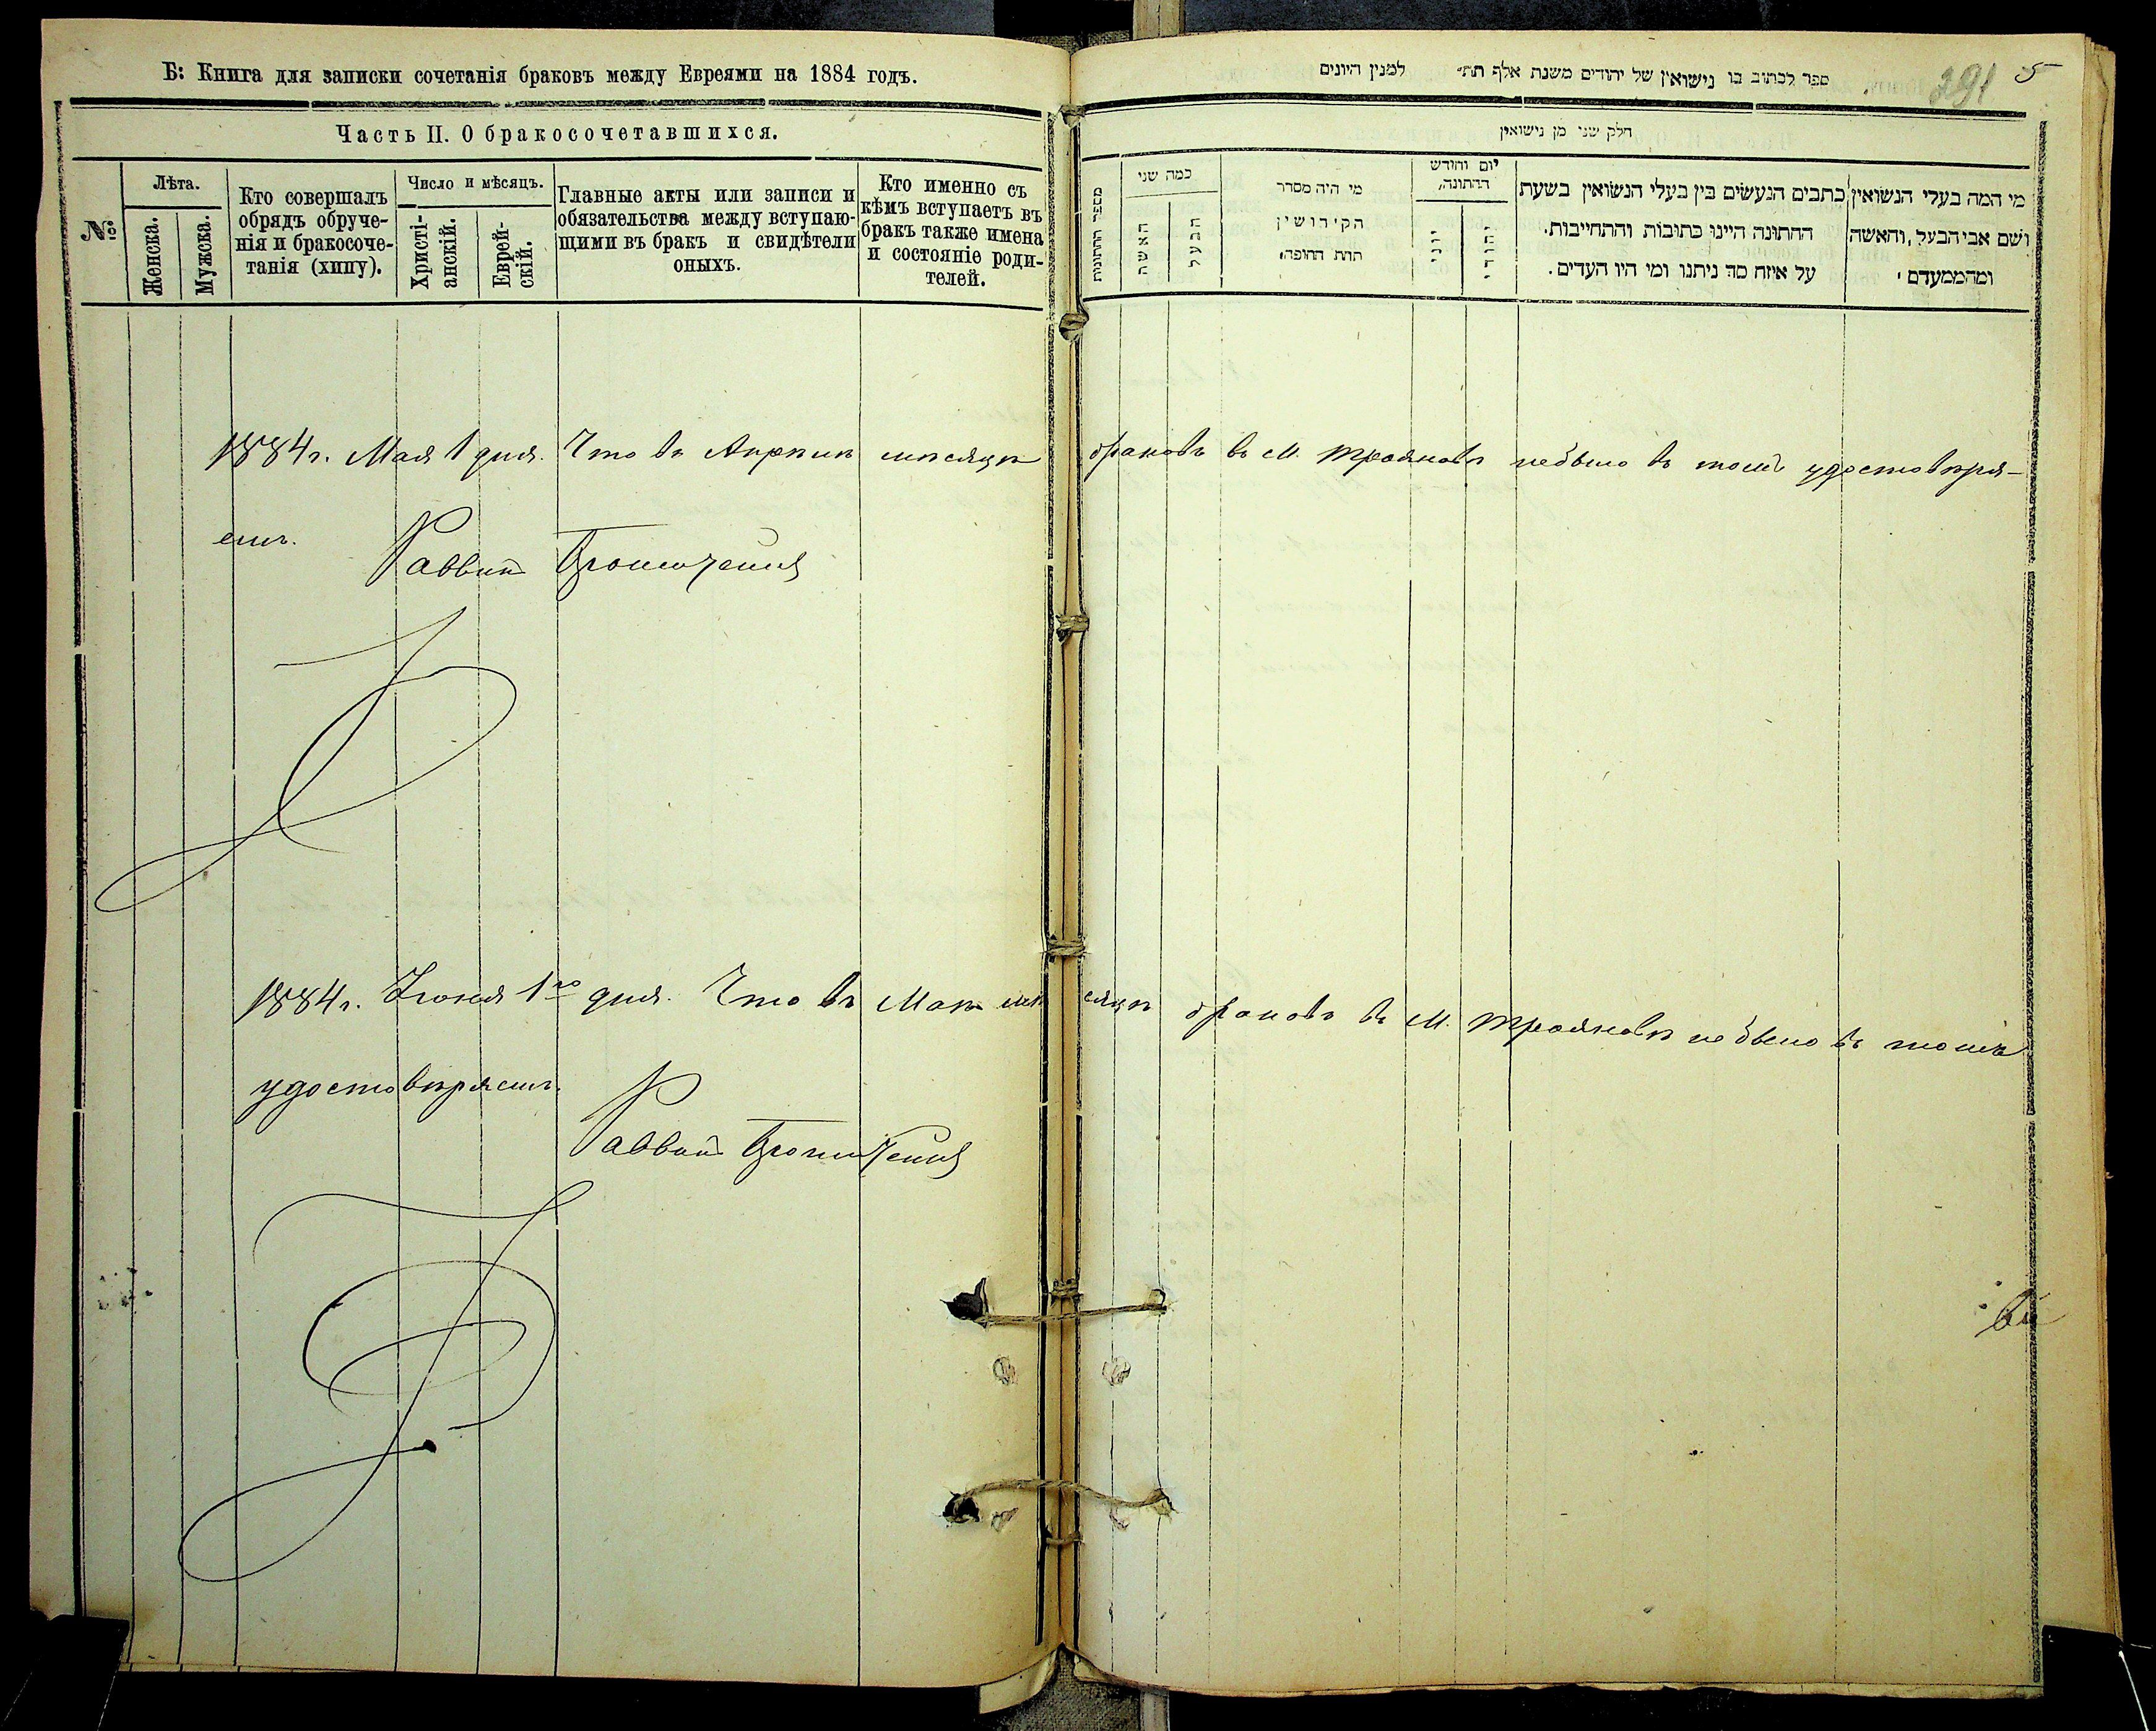 Б: Книга для записки сочетанія браковъ между Евреями на 1884 годъ.
Часть II. О бракосочетавшихся.
№
Лѣта.
Женска.
Мужска.
Кто совершалъ
обрядъ обруче-
нія и бракосоче-
танія (хипу).
Число и мѣсяцъ.
Христі-
анскій.
Еврей-
скій.
Главные акты или записи и
обязательства между вступаю-
щими въ бракъ и свидѣтели
оныхъ.
Кто именно съ
кѣмъ вступаетъ въ
бракъ также имена
и состояніе роди-
телей.
ספר לכתוב בו נישואין של יהודים משנת אלף תת״ למנין היונים
291 5
חלק שני מן נישואין
מספר החתונות
כמה שני
האשה
הבעל
מי היה מסדר
הקידושין
תחת החופה.
יום וחודש
החתונה,
יוני
יהודי
כתבים הנעשים בין בעלי הנשואין בשעת
החתונה היינו כתובות והתחייבות.
על איזה סך ניתנו ומי היו העדים.
מי המה בעלי הנשואין
ושם אבי הבעל, והאשה
ומהמעמדם
1884 г. Мая 1 дня. Что въ Апрѣлѣ мѣсяцѣ браковъ въ м. Трояновѣ небыло въ томъ удостовѣря-
емъ.
Раввин
1884 г. Іюня 1го дня. Что въ Маѣ мѣсяцѣ браковъ въ м. Трояновѣ небыло въ томъ
удостовѣряемъ.
Раввин